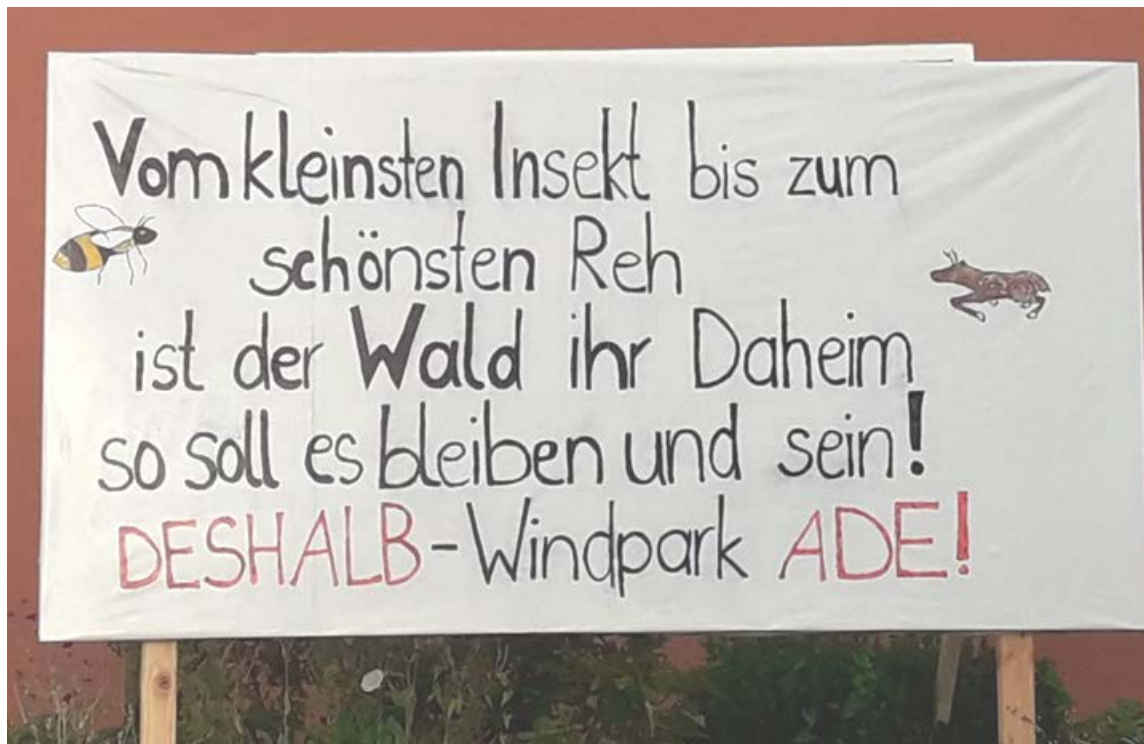 Vom kleinsten Insekt bis zum
schönsten Reh
ist der Wald ihr Daheim
so soll es bleiben und sein!
DESHALB-Windpark ADE!